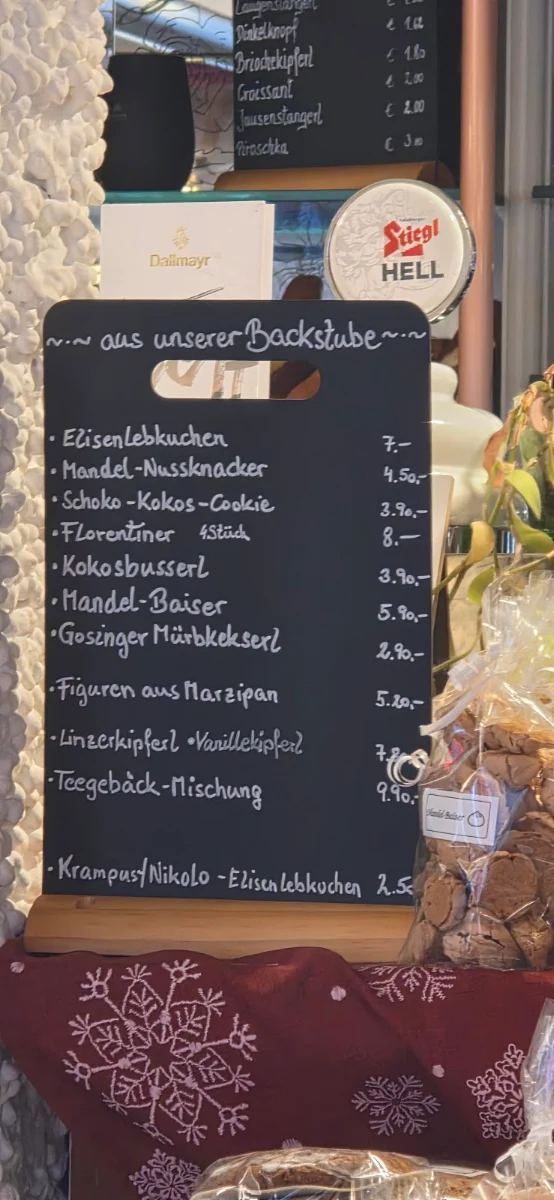 Laugenstangerl
Dinkelknopf € 1.62
Briochekipferl € 1.80
Croissant € 2.00
Jausenstangerl € 2.00
Piroschka €
Dallmayr
Stiegl
HELL
~·~ aus unserer Backstube ~·~
· Elisenlebkuchen 7.–
· Mandel-Nussknacker 4.50,-
· Schoko-Kokos-Cookie 3.90,-
· Florentiner 4Stück 8.—
· Kokosbusserl 3.90,-
· Mandel-Baiser 5.90,-
· Gosinger Mürbkekserl 2.90,-
· Figuren aus Marzipan 5.20,-
· Linzerkipferl • Vanillekipferl
· Teegebäck-Mischung 9.90,-
· Krampus/Nikolo - Elisenlebkuchen 2.50
Mandel-Baiser